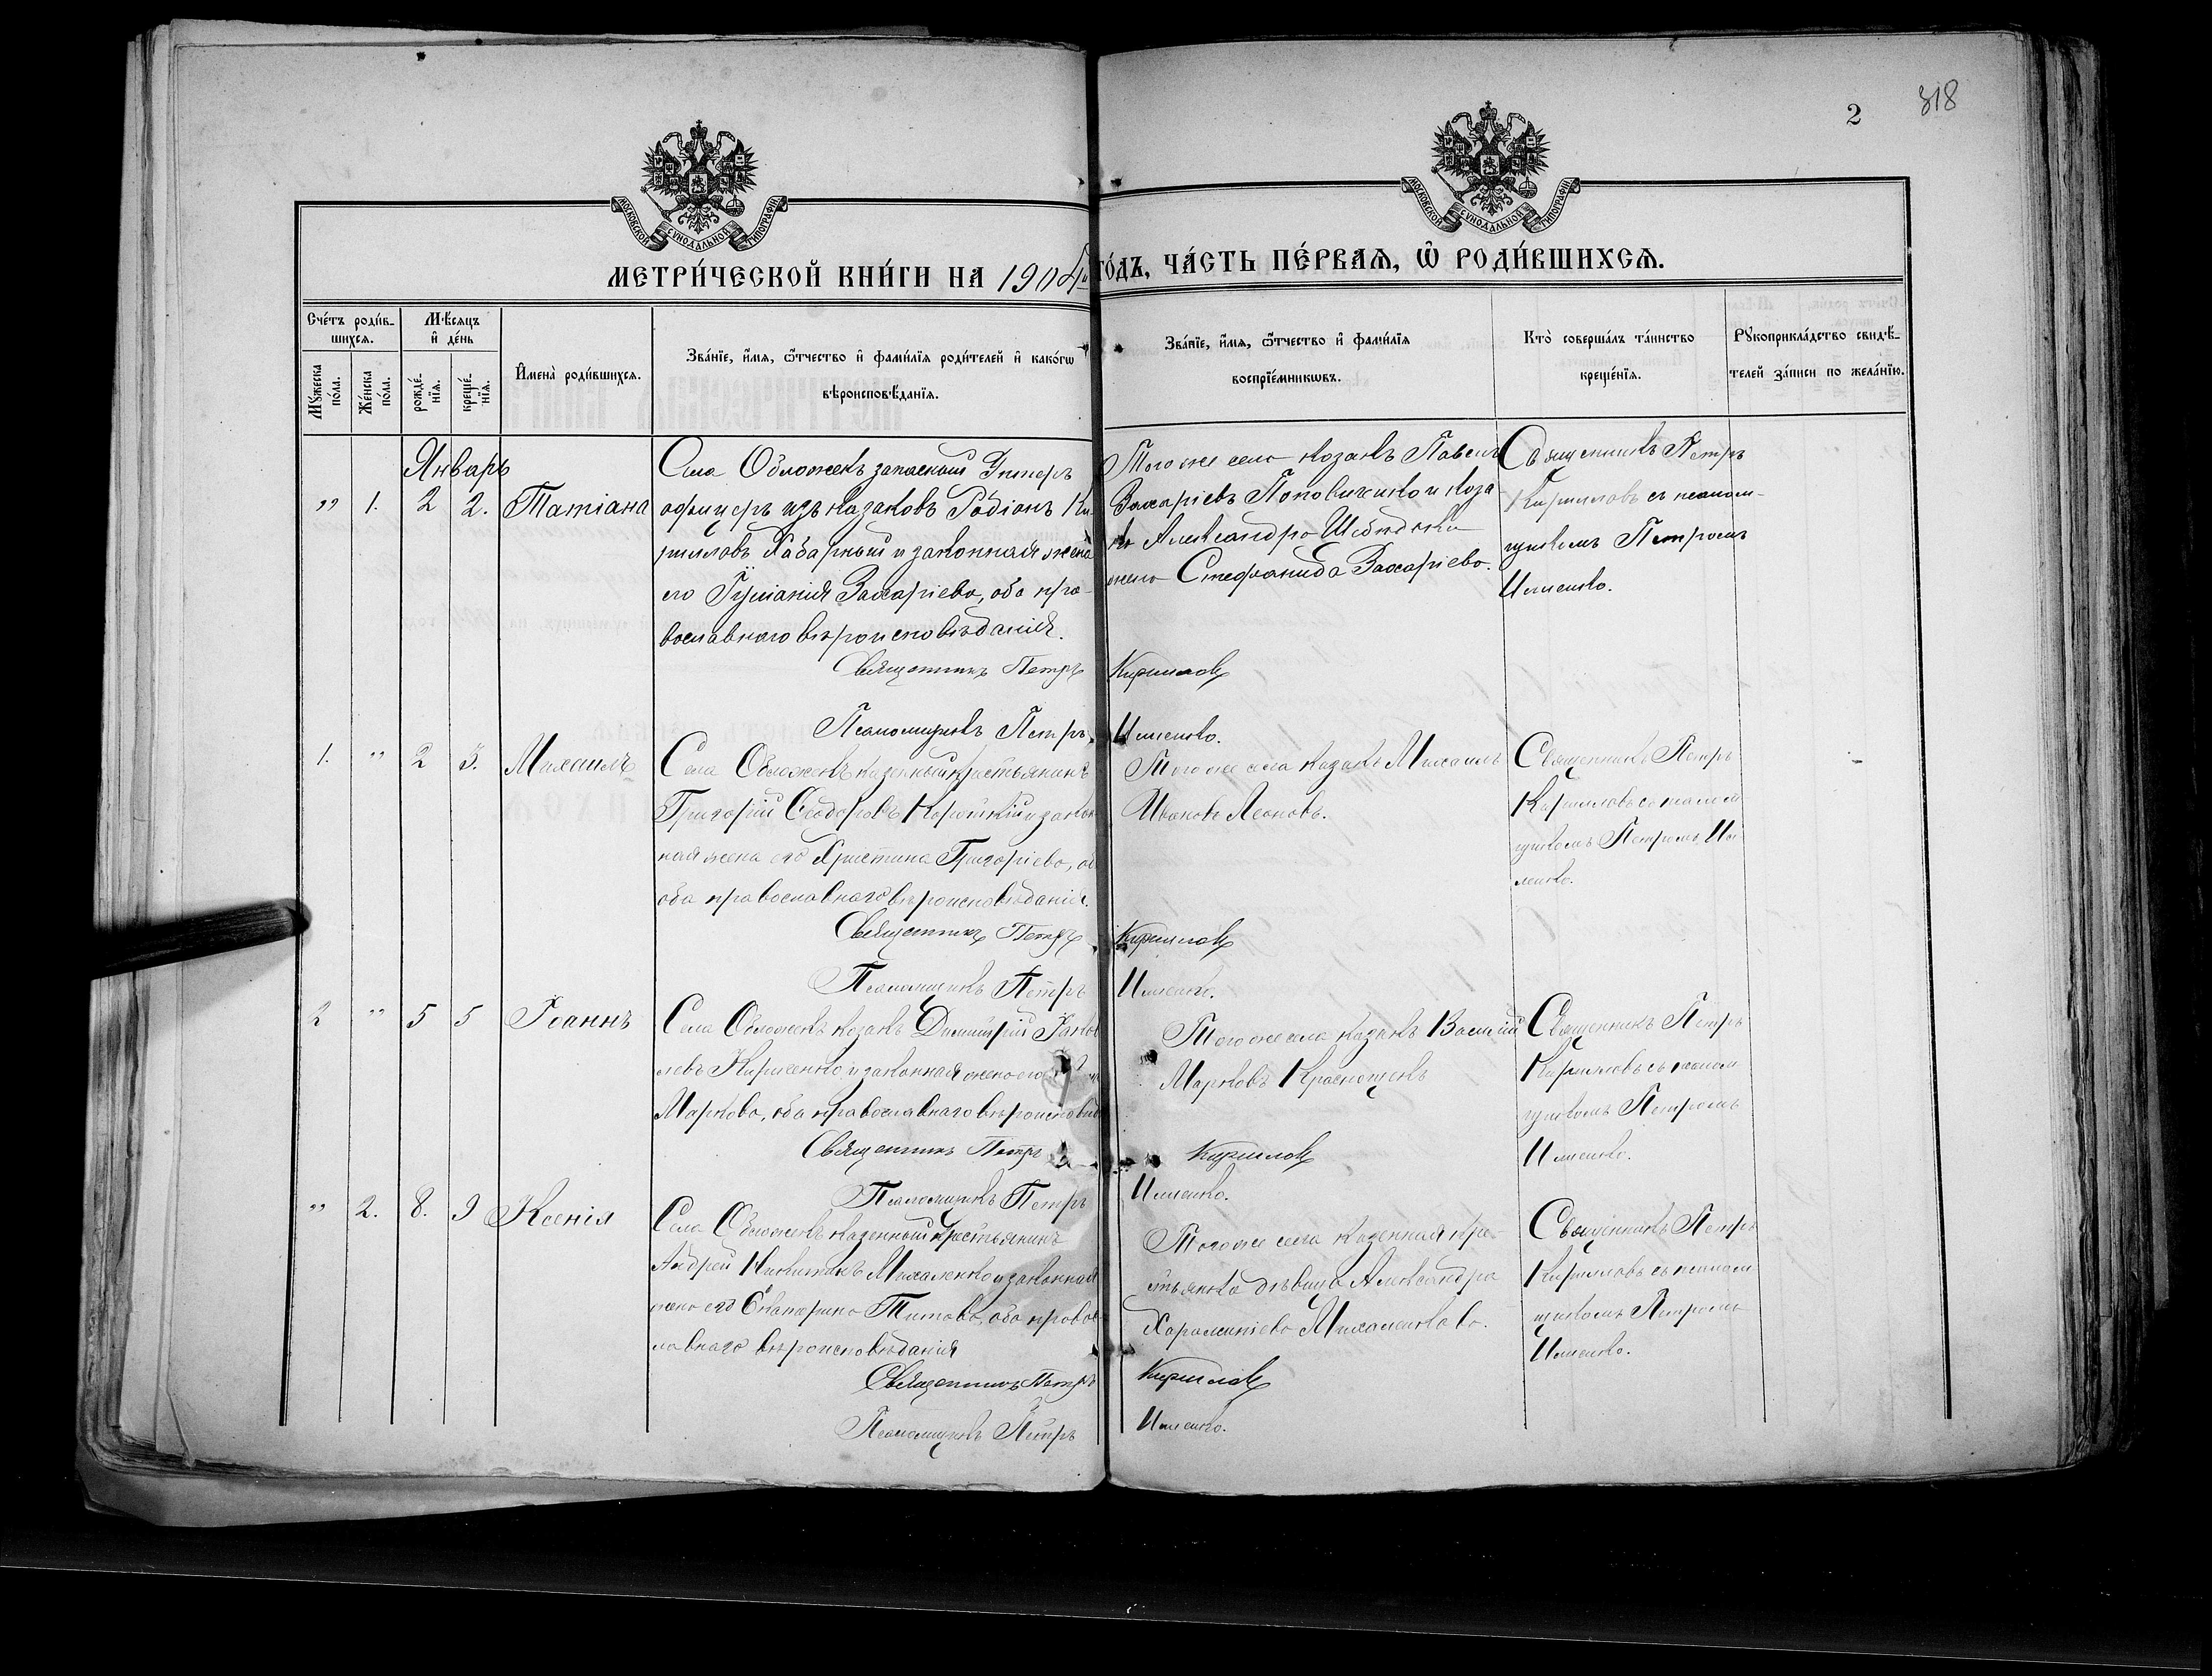 2
318
МОСКОВСКОЙ СѴНОДАЛЬНОЙ ТИПОГРАФІИ
МОСКОВСКОЙ СѴНОДАЛЬНОЙ ТИПОГРАФІИ
МЕТРИ́ЧЕСКОЙ КНИ́ГИ НА 1904й ГО́ДЪ, ЧА́СТЬ ПЕ́РВАѦ, Ѡ҆ РОДИ́ВШИХСѦ.
Сче́тъ роди́в-
шихсѧ.
Мꙋ́жеска
по́ла.
Же́нска
по́ла.
Мѣ́сѧцъ
и҆ де́нь
рожде́-
нїѧ.
креще́-
нїѧ.
И҆мена̀ роди́вшихсѧ.
Зва́нїе, и҆́мѧ, ѻ҆́тчество и҆ фами́лїѧ роди́телей и҆ како́гѡ
вѣроисповѣ́данїѧ.
Зва́нїе, и҆́мѧ, ѻ҆́тчество и҆ фами́лїѧ
воспрїе́мникѡвъ.
Кто̀ соверша́лъ та́инство
креще́нїѧ.
Рꙋкоприкла́дство свидѣ́-
телей за́писи по жела́нїю.
Январь
„ 1. 2 2. Татіана
Села Обложекъ запасный Унтеръ
офицеръ изъ казаковъ Родіонъ Ки-
рилловъ Хабарный и законная жена
его Іуліанія Захаріева, оба пра-
вославнаго вѣроисповѣданія.
Священникъ Петръ Кирилловъ
Псаломщикъ Петръ Ильенко.
Того же села казакъ Павелъ
Захаріевъ Поповиченко и каза-
ка Александра
жена Стефанида Захаріева.
Священникъ Петръ
Кирилловъ съ псалом-
щикомъ Петромъ
Ильенко.
1. „ 2 3. Михаилъ
Села Обложекъ казенный крестьянинъ
Григорій Ѳеодоровъ Короткій и закон
ная жена его Христина Григоріева, об
оба православнаго вѣроисповѣданія.
Священникъ Петръ Кирилловъ
Псаломщикъ Петръ Ильенко.
Того же села казакъ Михаилъ
Ивановъ Леоновъ.
Священникъ Петръ
Кирилловъ съ псалом
щикомъ Петромъ Иль
ленко.
2 „ 5 5 Іоаннъ
Села Обложекъ казакъ Димитрій Іаков
левъ Кириенко и законная жена его
Маркова, оба православнаго вѣроисповѣд
Священникъ Петръ Кирилловъ
Псаломщикъ Петръ Ильенко.
Того же села казакъ Василій
Марковъ Краснощекъ
Священникъ Петръ
Кирилловъ съ псалом
щикомъ Петромъ
Ильенко.
„ 2. 8. 9 Ксенія
Села Обложекъ казенный крестьянинъ
Андрей Никитинъ Михаленко и законная
жена его Екатерина Титова, оба правос
лавнаго вѣроисповѣданія
Священникъ Петръ Кирилловъ
Псаломщикъ Петръ Ильенко.
Того же села казенная кре-
стьянка дѣвица Александра
Харлампіева Михаленкова.
Священникъ Петръ
Кирилловъ съ псалом
щикомъ Петромъ
Ильенко.